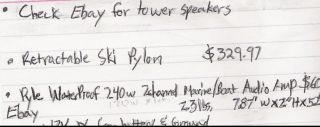 • Check Ebay for tower speakers
• Retractable Ski Pylon $329.97
• Pyle WaterProof 240w 2channel Marine/Boat Audio Amp $60
Ebay 2.3lbs, 7.87" W x 2" H x 5
12V w/
& Ground